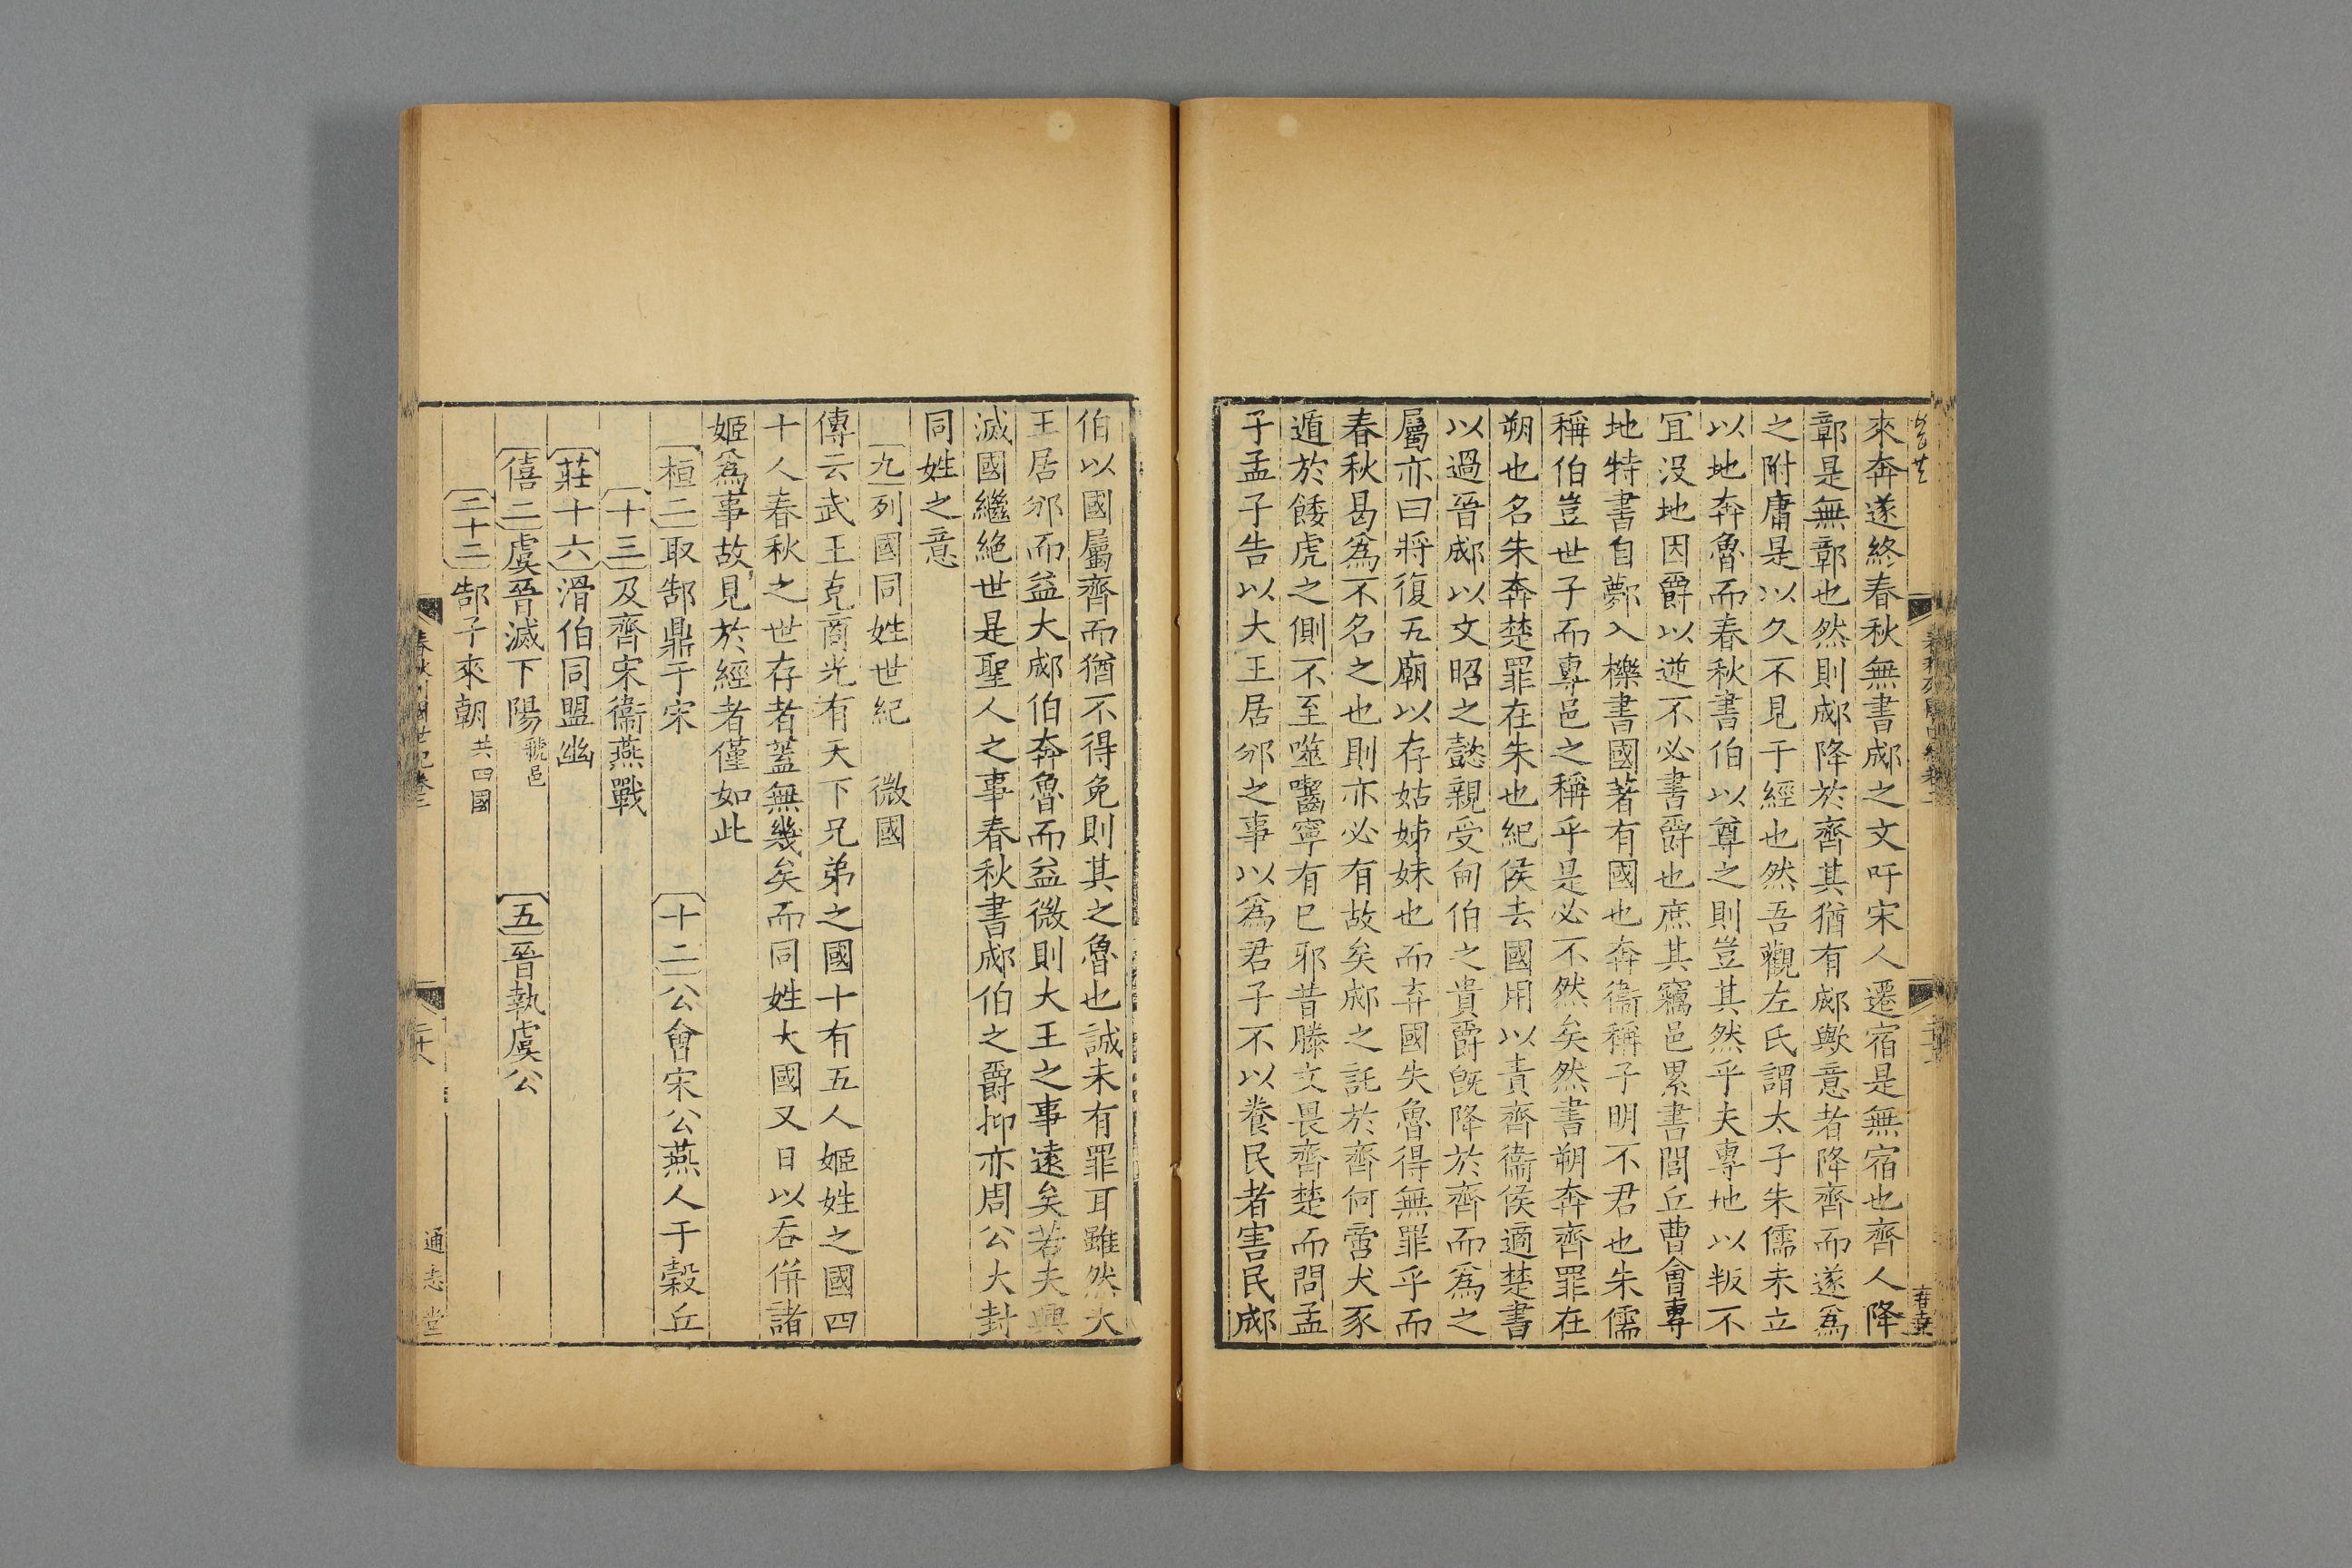 來奔遂終春秋無書郕之文吁宋人遷宿是無宿也齊人降
鄣是無鄣也然則郕降於齊其猶有郕歟意者降齊而遂爲
之附庸是以久不見于經也然吾觀左氏謂太子朱儒未立
以地奔魯而春秋書伯以尊之則豈其然乎夫專地以叛不
冝没地因爵以逆不必書爵也庶其竊邑累書閭丘曹會專
地特書自鄸入櫟書國著有國也奔衞稱子明不君也朱儒
稱伯豈世子而專邑之稱乎是必不然矣然書朔奔齊罪在
朔也名朱奔楚罪在朱也紀侯去國用以責齊衞侯適楚書
以過晉郕以文昭之懿親受甸伯之貴爵旣降於齊而爲之
屬亦曰將復五廟以存姑姊妹也而弃國失魯得無罪乎而
春秋曷爲不名之也則亦必有故矣郕之託於齊何啻犬豕
遁於餧虎之側不至噬嚙寧有已邪昔滕文畏齊楚而問孟
子孟子告以大王居邠之事以爲君子不以養民者害民郕
伯以國屬齊而猶不得免則其之魯也誠未有罪耳雖然大
王居邠而益大郕伯奔魯而益微則大王之事遠矣若夫興
滅國繼絶世是聖人之事春秋書郕伯之爵抑亦周公大封
同姓之意
九列國同姓世紀 微國
傳云武王克商光有天下兄弟之國十有五人姬姓之國四
十人春秋之世存者蓋無幾矣而同姓大國又日以吞併諸
姬爲事故見於經者僅如此
桓二取郜鼎于宋 十二公會宋公燕人于穀丘
十三及齊宋衞燕戰
莊十六滑伯同盟幽
僖二虞晉滅下陽虢邑 五晉執虞公
二十二郜子來朝共四國
春秋列國世紀卷三 二十八 通志堂